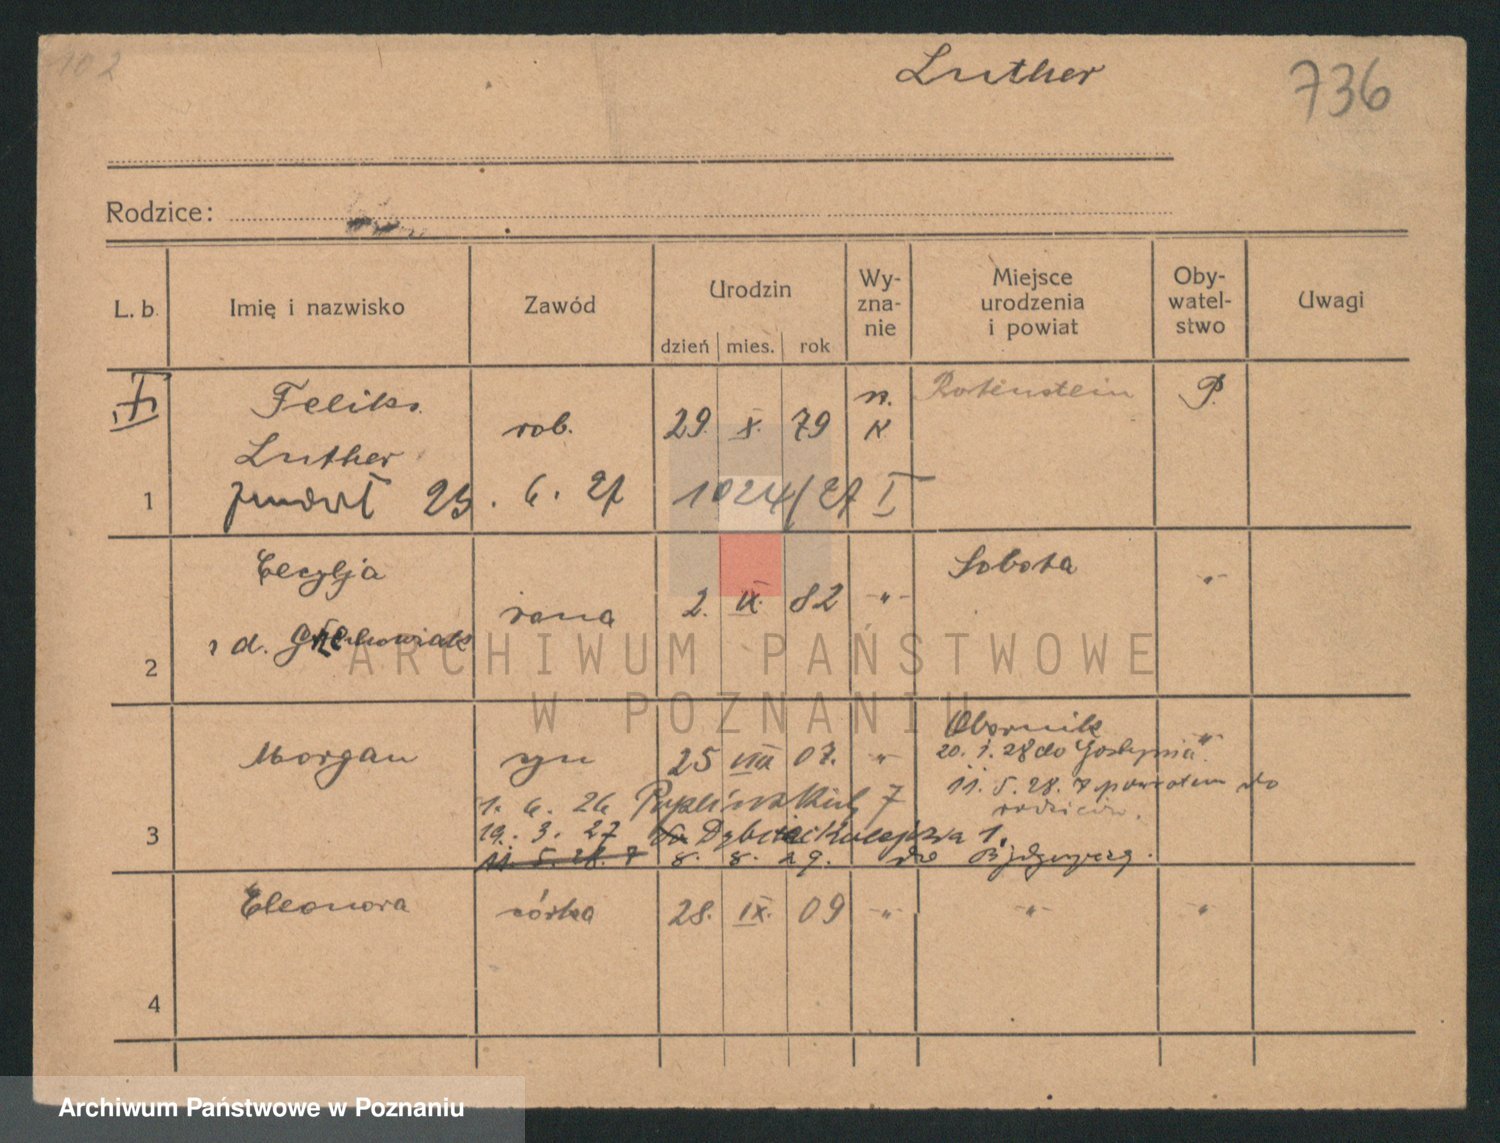 102
Luther
736
Rodzice:
L. b. Imię i nazwisko Zawód Urodzin Wy-zna-nie Miejsce urodzenia i powiat Oby-watel-stwo Uwagi
dzień mies. rok
Feliks rob. 29. X. 79 n. K Rotenstein P.
Luther
1 zmarł 25. 6. 27 1024/27 I
Cecylja żona 2. IX. 82 -"- Sobota -"-
2 z d. Grzechowiak
Morgan syn 25 VIII 07. -"- Obornik -"-
20. 1. 28 do Gostynia
11. 5. 28. z powrotem do
rodziców.
1. 6. 26 7
19. 3. 27 1.
3 11. 5. 28. z 8. 8. 29. do Bydgoszczy.
Eleonora córka 28. IX. 09 -"- -"- -"-
4
ARCHIWUM PAŃSTWOWE
W POZNANIU
Archiwum Państwowe w Poznaniu